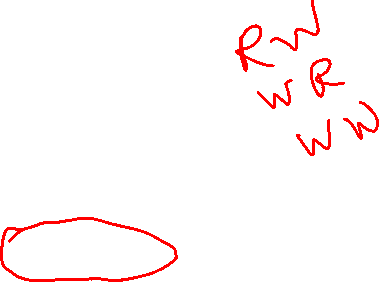 RW
WR
WW